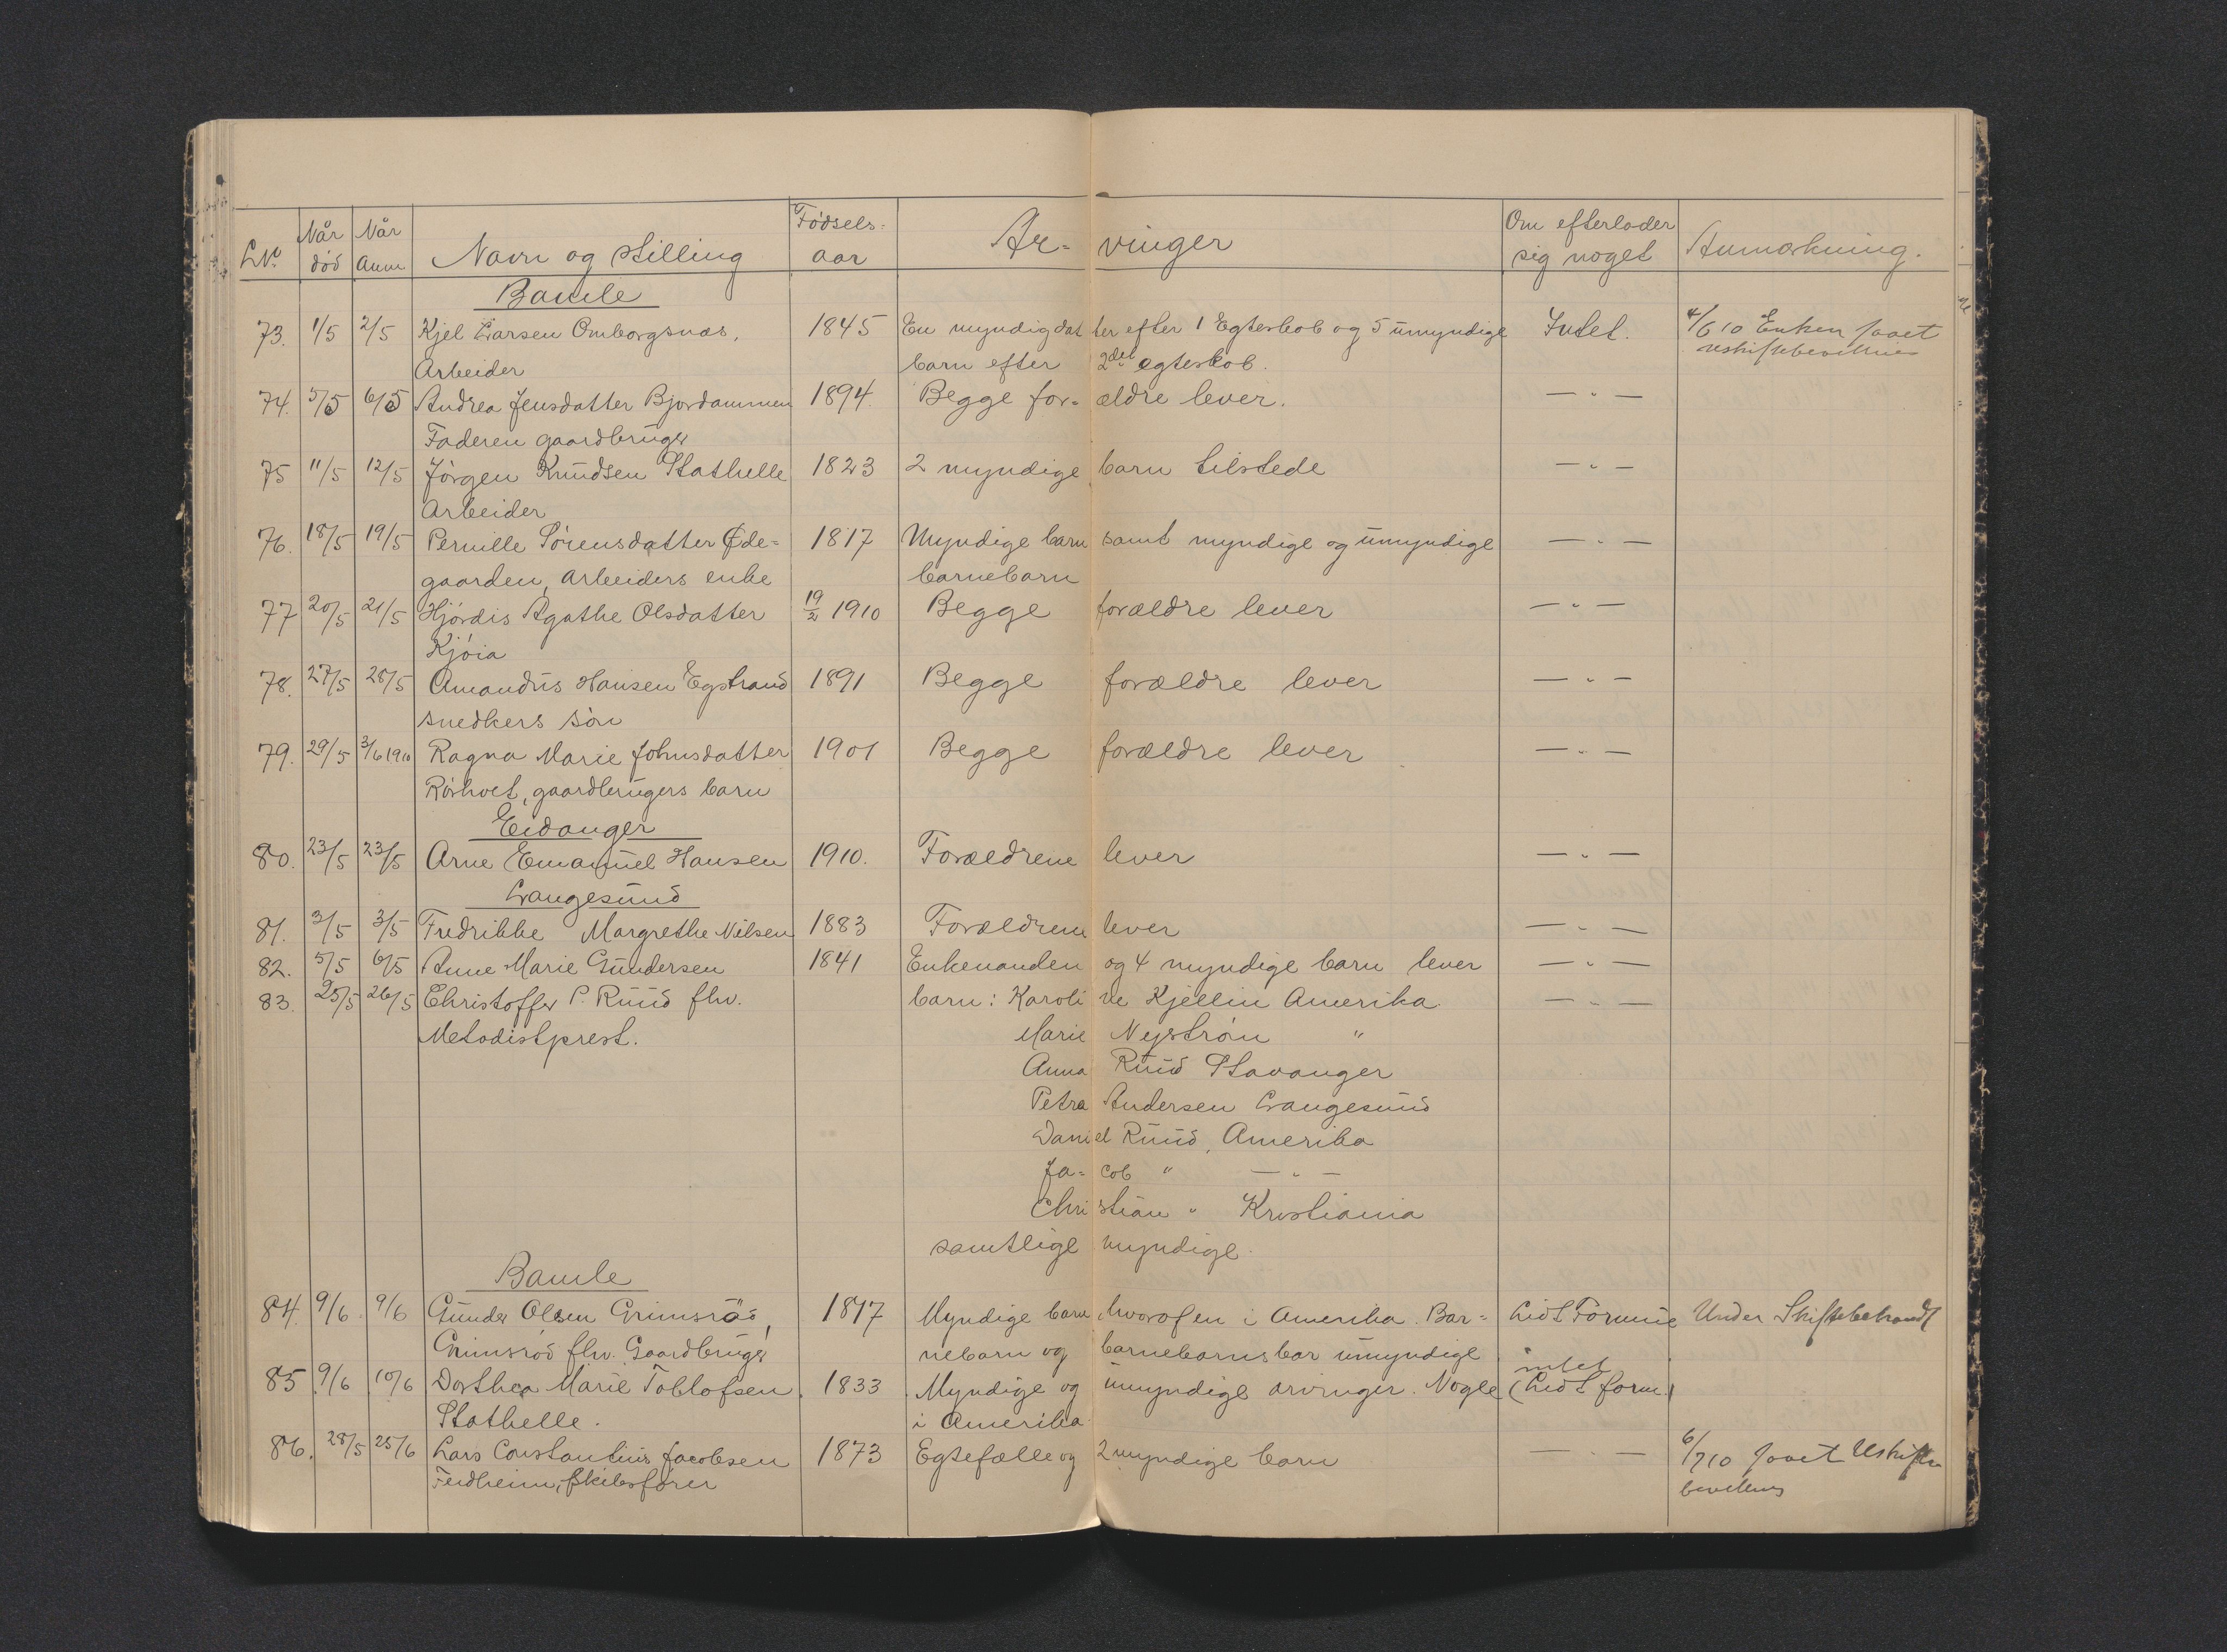 LNº Når død Når Anm Navn og stilling Fødsels-aar Ar- vinger Om efterlader sig noget Anmærkning.
Bamle
73. 1/5 2/5 Kjel Larsen Omborgsnæs, 1845 En myndig datter efter 1 Egteskob og 5 umyndige Intet. 4/6 10 Enken faaet
Arbeider barn efter 2det egteskob. uskiftebevilling
74. 5/5 6/5 Andrea Jensdatter Bjordammen 1894. Begge for- ældre lever. — " —
Faderen gaardbruger
75 11/5 12/5 Jørgen Knudsen Stathelle 1823 2 myndige barn tilstede — " —
Arbeider
76. 18/5 19/5 Pernille Sørensdatter Øde- 1817 Myndige barn samt myndige og umyndige — " —
gaarden, arbeiders enke barnebarn
77 20/5 21/5 Hjørdis Agathe Olsdatter 19/2 1910 Begge forældre lever — " —
Kjøia
78. 27/5 28/5 Amandus Hansen Egstrand 1891 Begge forældre lever — " —
snedkers søn
79. 29/5 3/6 1910 Ragna Marie Johnsdatter 1901 Begge forældre lever — " —
Rørholt, gaardbrugers barn
Eidanger
80. 23/5 23/5 Arne Emanuel Hansen 1910. Forældrene lever — " —
Langesund
81. 3/5 3/5 Fredrikke Margrethe Nilsen 1883 Forældrene lever — " —
82. 5/5 6/5 Anne Marie Gundersen 1841 Enkemanden og 4 myndige barn lever — " —
83. 25/5 26/5 Christoffer P. Ruud fhv. barn: Karoline Kjellin Amerika — " —
Metodistprest. Marie Nystrøm "
Anna Ruud Stavanger
Petra Andersen Langesund
Daniel Ruud, Amerika
Ja- cob " — " —
Christian " Kristiania
samtlige myndige.
Bamle
84. 9/6 9/6 Gunder Olsen Grimsrød, 1817 Myndige barn hvorof en i Amerika. Bar- Lidt Formue Under Skiftebehandl
Grimsrød fhv. Gaardbruger nebarn og barnebarnsbar umyndige
85 9/6 10/6 Dorthea Marie Tollofsen 1833 Myndige og umyndige arvinger. Nogle intet (Lidt form.)
Stathelle. i Amerika
86. 28/5 25/6 Lars Constantius Jacobsen 1873 Egtefælle og 2 myndige barn — " — 6/7 10 faaet Uskifte
Feidheim, Skibsfører bevilling